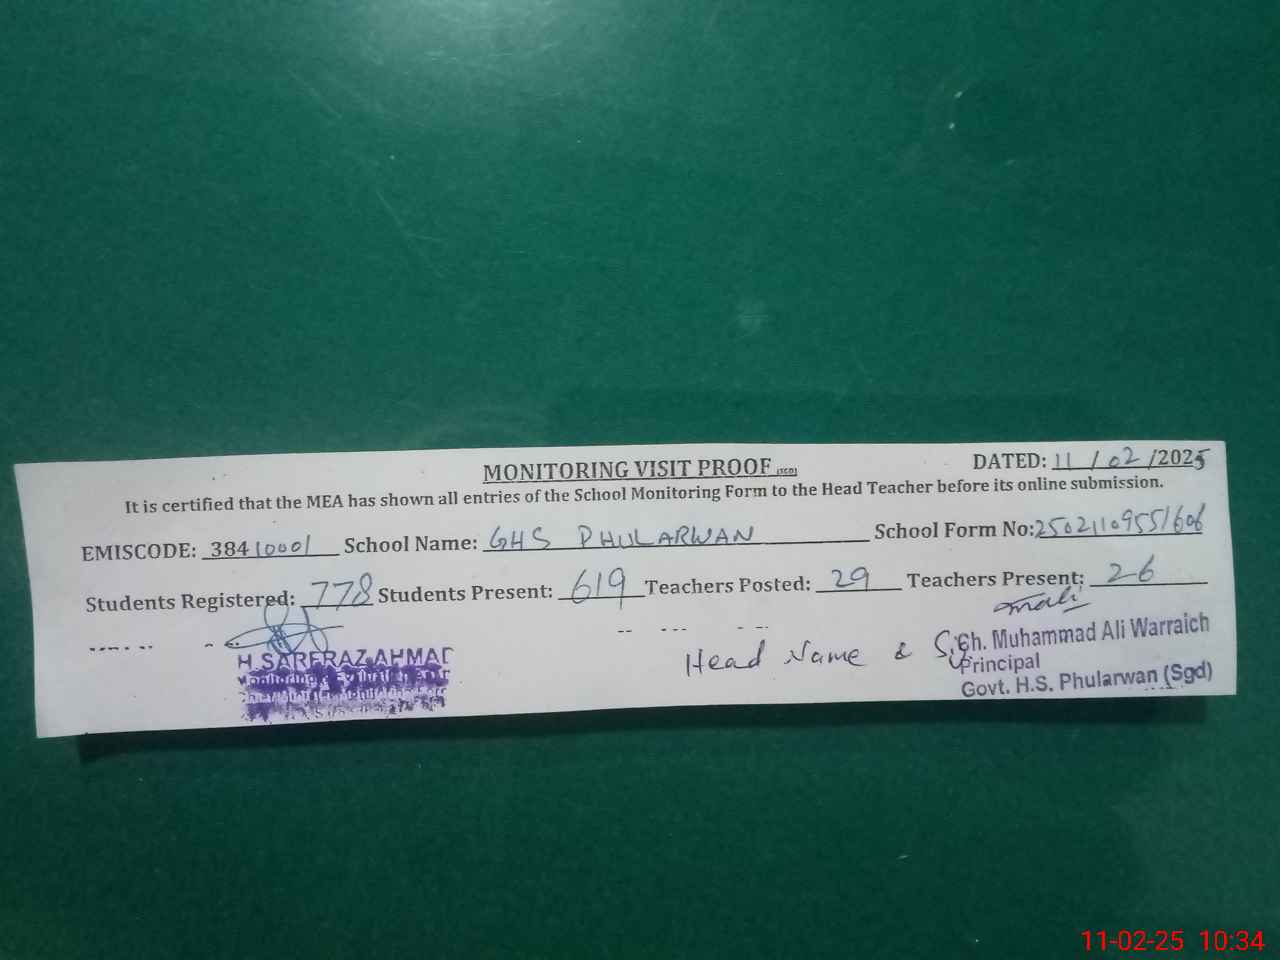 MONITORING VISIT PROOF
DATED: 11/02/2025
It is certified that the MEA has shown all entries of the School Monitoring Form to the Head Teacher before its online submission.
EMISCODE: 38410001 School Name: GHS PHULARWAN School Form No: 25021109551606
Students Registered: 778 Students Present: 619 Teachers Posted: 29 Teachers Present: 26
H SARFRAZ AHMAD
Monitoring & Evaluation
Head Name &
Ch. Muhammad Ali Warraich
Principal
Govt. H.S. Phularwan (Sgd)
11-02-25 10:34